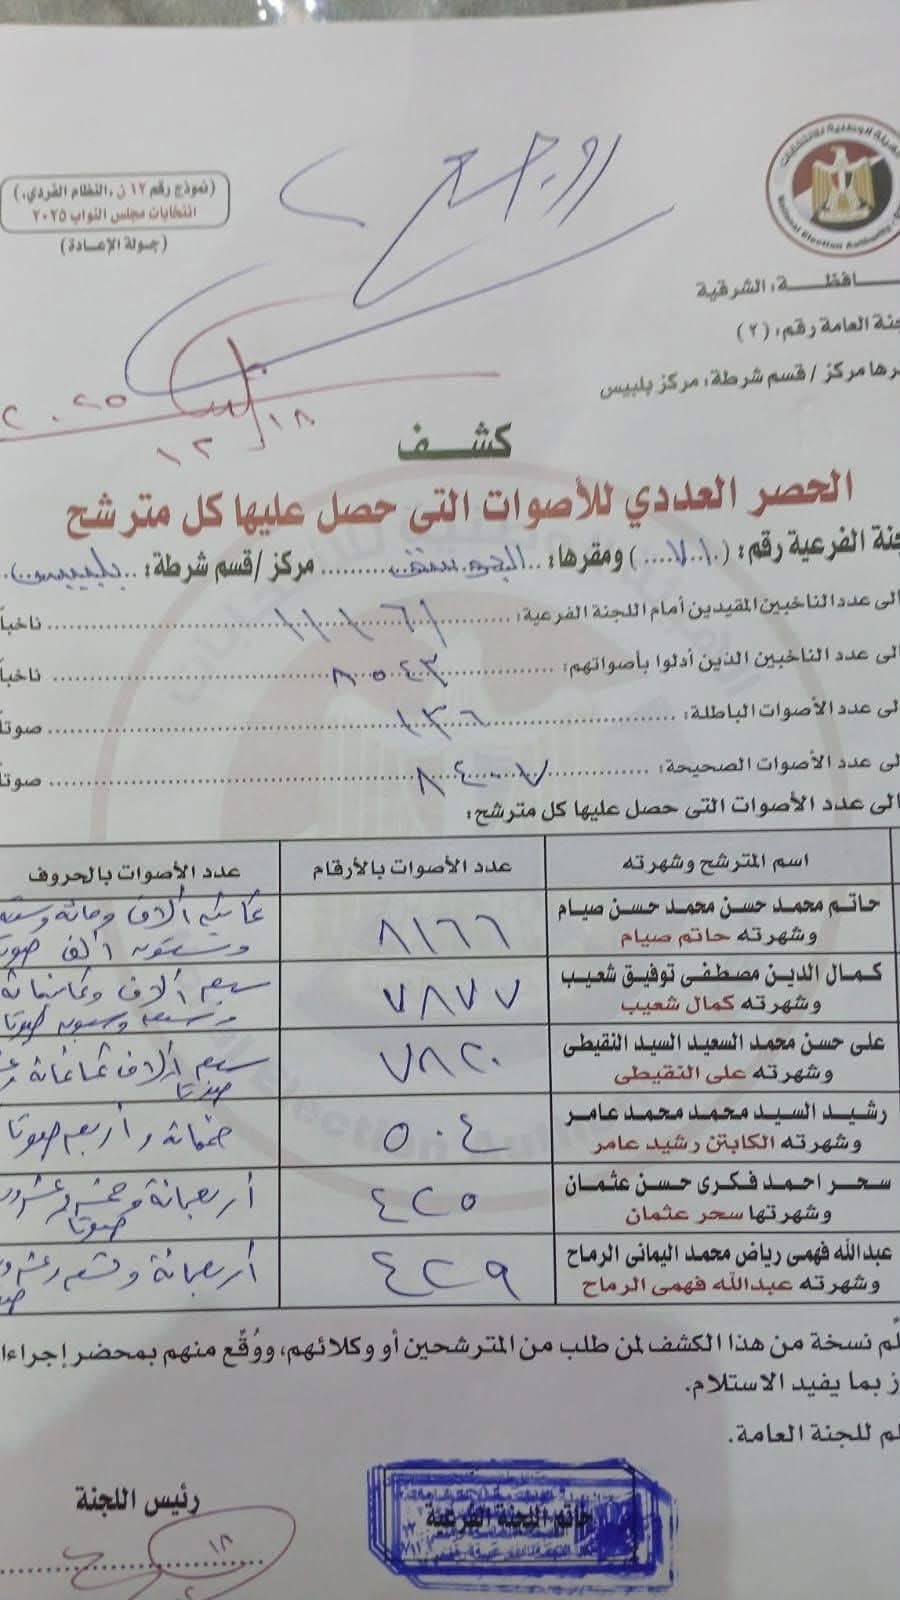 روجع
الهيئة الوطنية للانتخابات
National Election Authority
(نموذج رقم ١٢ ن، النظام الفردي،)
انتخابات مجلس النواب ٢٠٢٥
(جولة الإعادة)
افظـــة، الشرقية
جنة العامة رقم، (٢)
رها مركز / قسم شرطة، مركز بلبيس
١٨ ١٢ ٢٠٢٥
كشـــف
الحصر العددي للأصوات التى حصل عليها كل مترشح
جنة الفرعية رقم: (٧١٠....) ومقرها: ..الجوسق......... مركز /قسم شرطة: ..بلبيس..
الى عدد الناخبين المقيدين أمام اللجنة الفرعية: ......١١١٦١...... ناخباً
الى عدد الناخبين الذين أدلوا بأصواتهم: ......٨٥٤٣...... ناخباً
لى عدد الأصوات الباطلة: ......١٣٦...... صوتاً
لى عدد الأصوات الصحيحة: ......٨٤٠٧...... صوتاً
الى عدد الأصوات التى حصل عليها كل مترشح:
اسم المترشح وشهرته عدد الأصوات بالأرقام عدد الأصوات بالحروف
حاتم محمد حسن محمد حسن صيام ٨١٦٦ ثمانية ألاف ومائة وستة
وشهرته حاتم صيام وستون ألف صوت
كمال الدين مصطفى توفيق شعيب ٧٨٧٧ سبع ألاف وثمانمائة
وشهرته كمال شعيب وسبعة وسبعون صوتا
على حسن محمد السعيد السيد النقيطى ٧٨٢٠ سبع ألاف ثمانمائة
وشهرته على النقيطى صوتا
رشيد السيد محمد محمد عامر ٥٠٤ خمسمائة وأربع صوتا
وشهرته الكابتن رشيد عامر
سحر احمد فكرى حسن عثمان ٤٢٥ أربعمائة وخمس وعشرون
وشهرتها سحر عثمان صوتا
عبدالله فهمى رياض محمد اليمانى الرماح ٤٢٩ أربعمائة وتسع
وشهرته عبدالله فهمى الرماح
لّم نسخة من هذا الكشف لمن طلب من المترشحين أو وكلائهم، ووُقّع منهم بمحضر إجراءا
ز بما يفيد الاستلام.
لم للجنة العامة.
رئيس اللجنة
خاتم اللجنة الفرعية